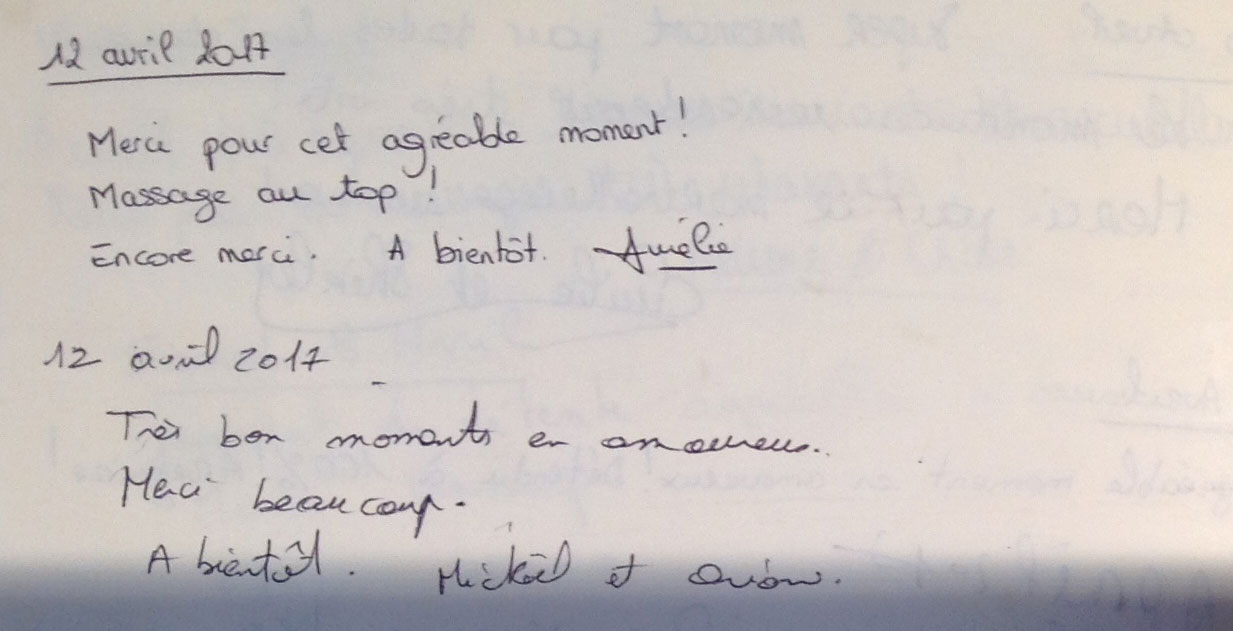 12 avril 2017
Merci pour cet agréable moment !
Massage au top !
Encore merci. A bientôt. Aurélie
12 avril 2017
Très bon moments en amoureux..
Merci beaucoup.
A bientôt. Mickaël et